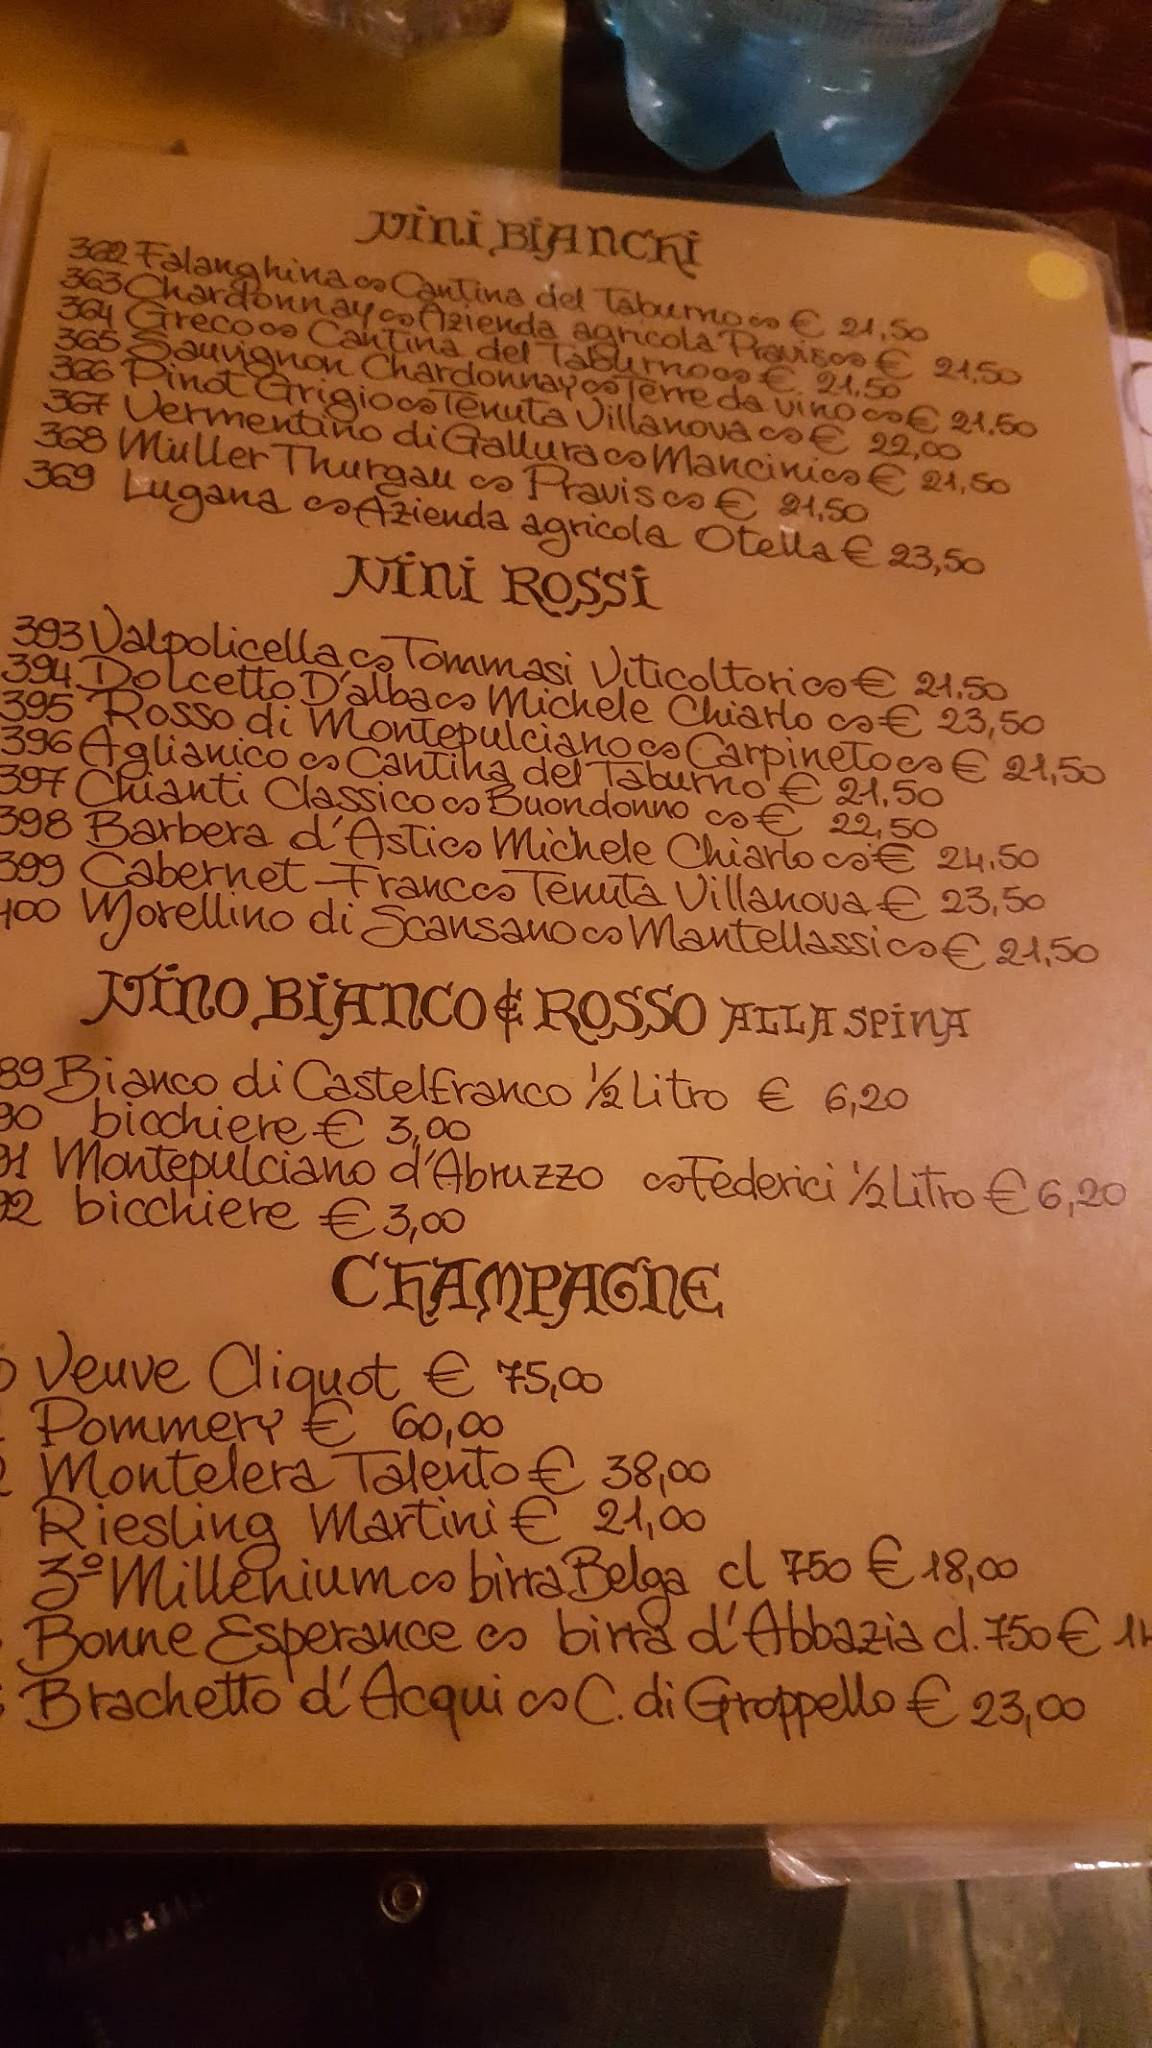 VINI BIANCHI
362 Falanghina ∾ Cantina del Taburno ∾ € 21,50
363 Chardonnay ∾ Azienda agricola Pravis ∾ € 21,50
364 Greco ∾ Cantina del Taburno ∾ € 21,50
365 Sauvignon Chardonnay ∾ Terre da vino ∾ € 21.50
366 Pinot Grigio ∾ Tenuta Villanova ∾ € 22,00
367 Vermentino di Gallura ∾ Mancini ∾ € 21,50
368 Müller Thurgau ∾ Pravis ∾ € 21,50
369 Lugana ∾ Azienda agricola Otella € 23,50
VINI ROSSI
393 Valpolicella ∾ Tommasi Viticoltori ∾ € 21.50
394 Dolcetto D'alba ∾ Michele Chiarlo ∾ € 23,50
395 Rosso di Montepulciano ∾ Carpineto ∾ € 21,50
396 Aglianico ∾ Cantina del Taburno € 21.50
397 Chianti Classico ∾ Buondonno ∾ € 22,50
398 Barbera d'Asti ∾ Michele Chiarlo ∾ € 24.50
399 Cabernet Franc ∾ Tenuta Villanova € 23,50
400 Morellino di Scansano ∾ Mantellassi ∾ € 21,50
VINO BIANCO & ROSSO ALLA SPINA
89 Bianco di Castelfranco 1/2 Litro € 6,20
90 bicchiere € 3,00
91 Montepulciano d'Abruzzo ∾ Federici 1/2 Litro € 6,20
92 bicchiere € 3,00
CHAMPAGNE
Veuve Cliquot € 75,00
Pommery € 60,00
Montelera Talento € 38,00
Riesling Martini € 21,00
3º Millenium ∾ birra Belga cl 750 € 18,00
Bonne Esperance ∾ birra d'Abbazia cl. 750 €
Brachetto d'Acqui ∾ C. di Groppello € 23,00